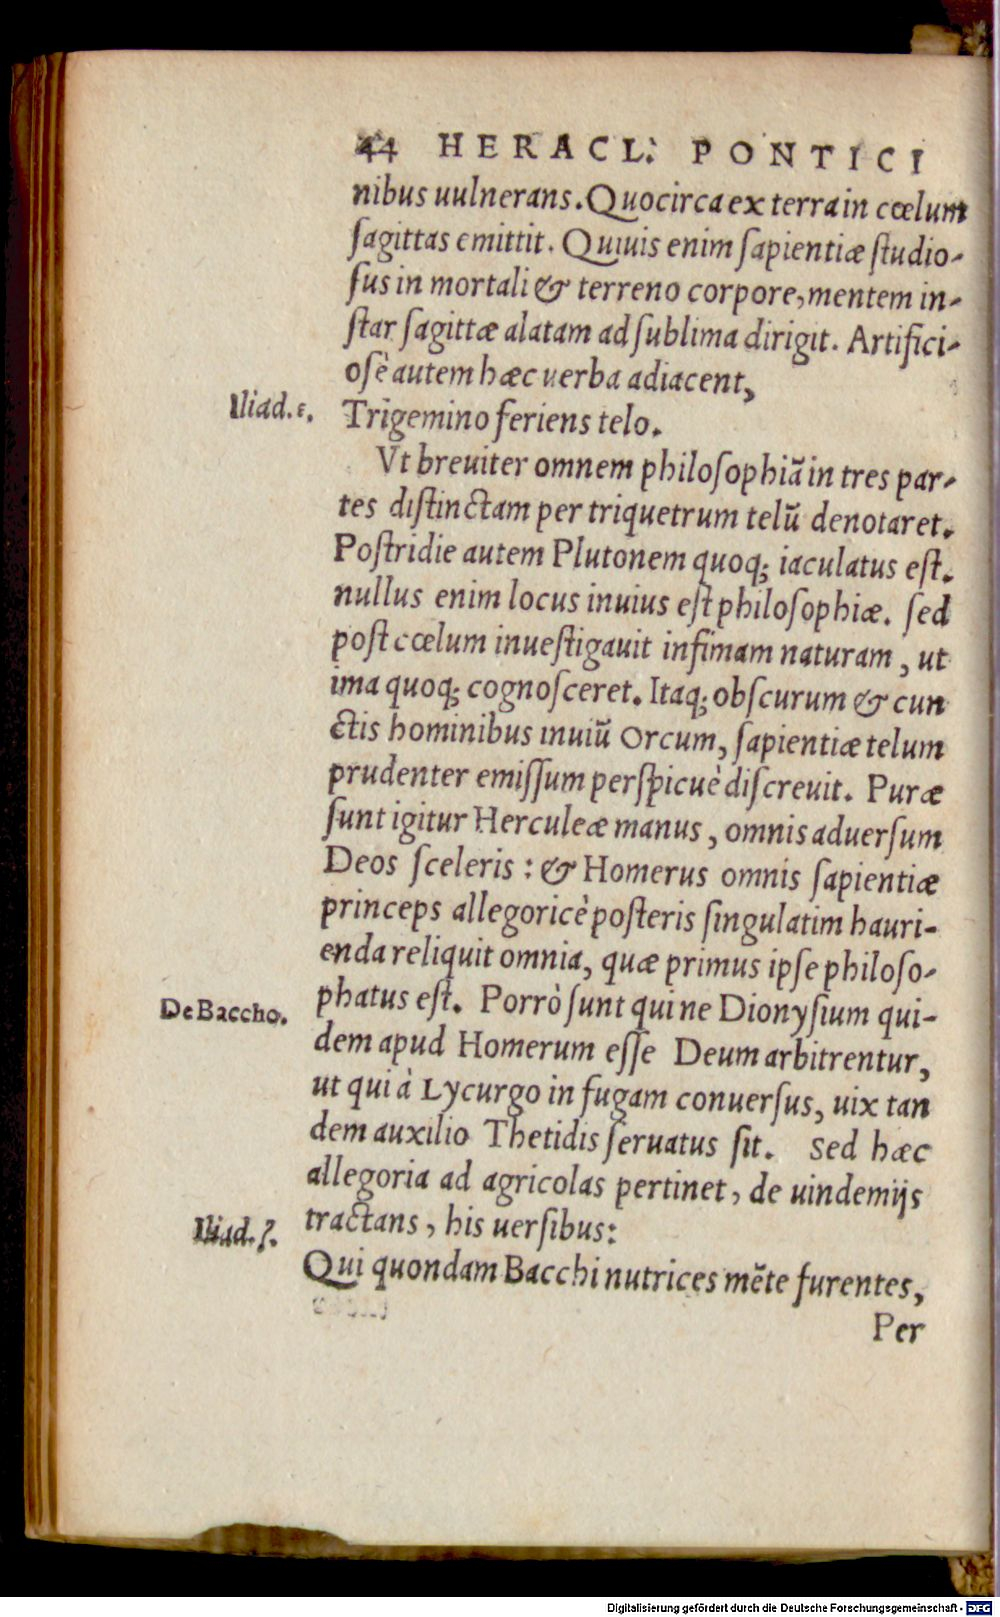 44 HERACL: PONTICI
nibus uulnerans. Quocirca ex terra in cœlum
ſagittas emittit. Quiuis enim ſapientiæ ſtudio-
ſus in mortali & terreno corpore, mentem in-
ſtar ſagittæ alatam ad ſublima dirigit. Artifici-
oſè autem hæc uerba adiacent,
Iliad. ε. Trigemino feriens telo.
Vt breuiter omnem philoſophiã in tres par-
tes diſtinctam per triquetrum telũ denotaret.
Poſtridie autem Plutonem quoq; iaculatus eſt.
nullus enim locus inuius eſt philoſophiæ. ſed
poſt cœlum inueſtigauit infimam naturam, ut
ima quoq; cognoſceret. Itaq; obſcurum & cun
ctis hominibus inuiũ Orcum, ſapientiæ telum
prudenter emiſſum perſpicuè diſcreuit. Puræ
ſunt igitur Herculeæ manus, omnis aduerſum
Deos ſceleris: & Homerus omnis ſapientiæ
princeps allegoricè poſteris ſingulatim hauri-
enda reliquit omnia, quæ primus ipſe philoſo-
De Baccho. phatus eſt. Porrò ſunt qui ne Dionyſium qui-
dem apud Homerum eſſe Deum arbitrentur,
ut qui à Lycurgo in fugam conuerſus, uix tan
dem auxilio Thetidis ſeruatus ſit. Sed hæc
allegoria ad agricolas pertinet, de uindemijs
tractans, his uerſibus:
Iliad. ζ.
Qui quondam Bacchi nutrices mẽte furentes,
Per
Digitalisierung gefördert durch die Deutsche Forschungsgemeinschaft - DFG